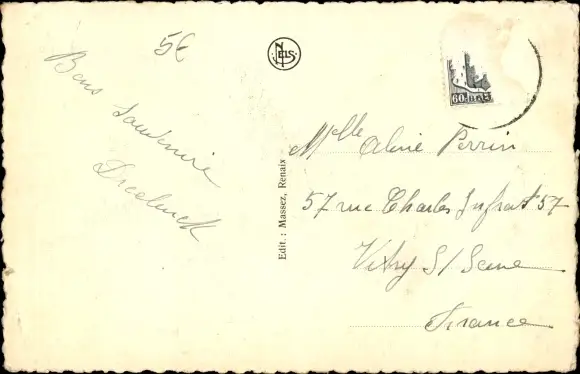 5€
Bons Souvenirs
NELS
Edit.: Massez, Renaix
60
Mlle Aline Perrin
57 rue Charles Infroit 57
Vitry S/ Seine
France